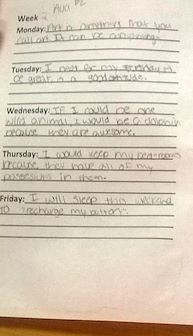 Week Aug #2
Monday: Art is anything that you
call art. It can be anything.
Tuesday: I need for my Tuesday to
be great, is a good attitude.
Wednesday: If I could be one
wild animal, I would be a dolphin
because they are awesome.
Thursday: I would keep my bedrooms
because, they have all of my
possesions in them.
Friday: I will sleep this weekend
to recharge my battery.